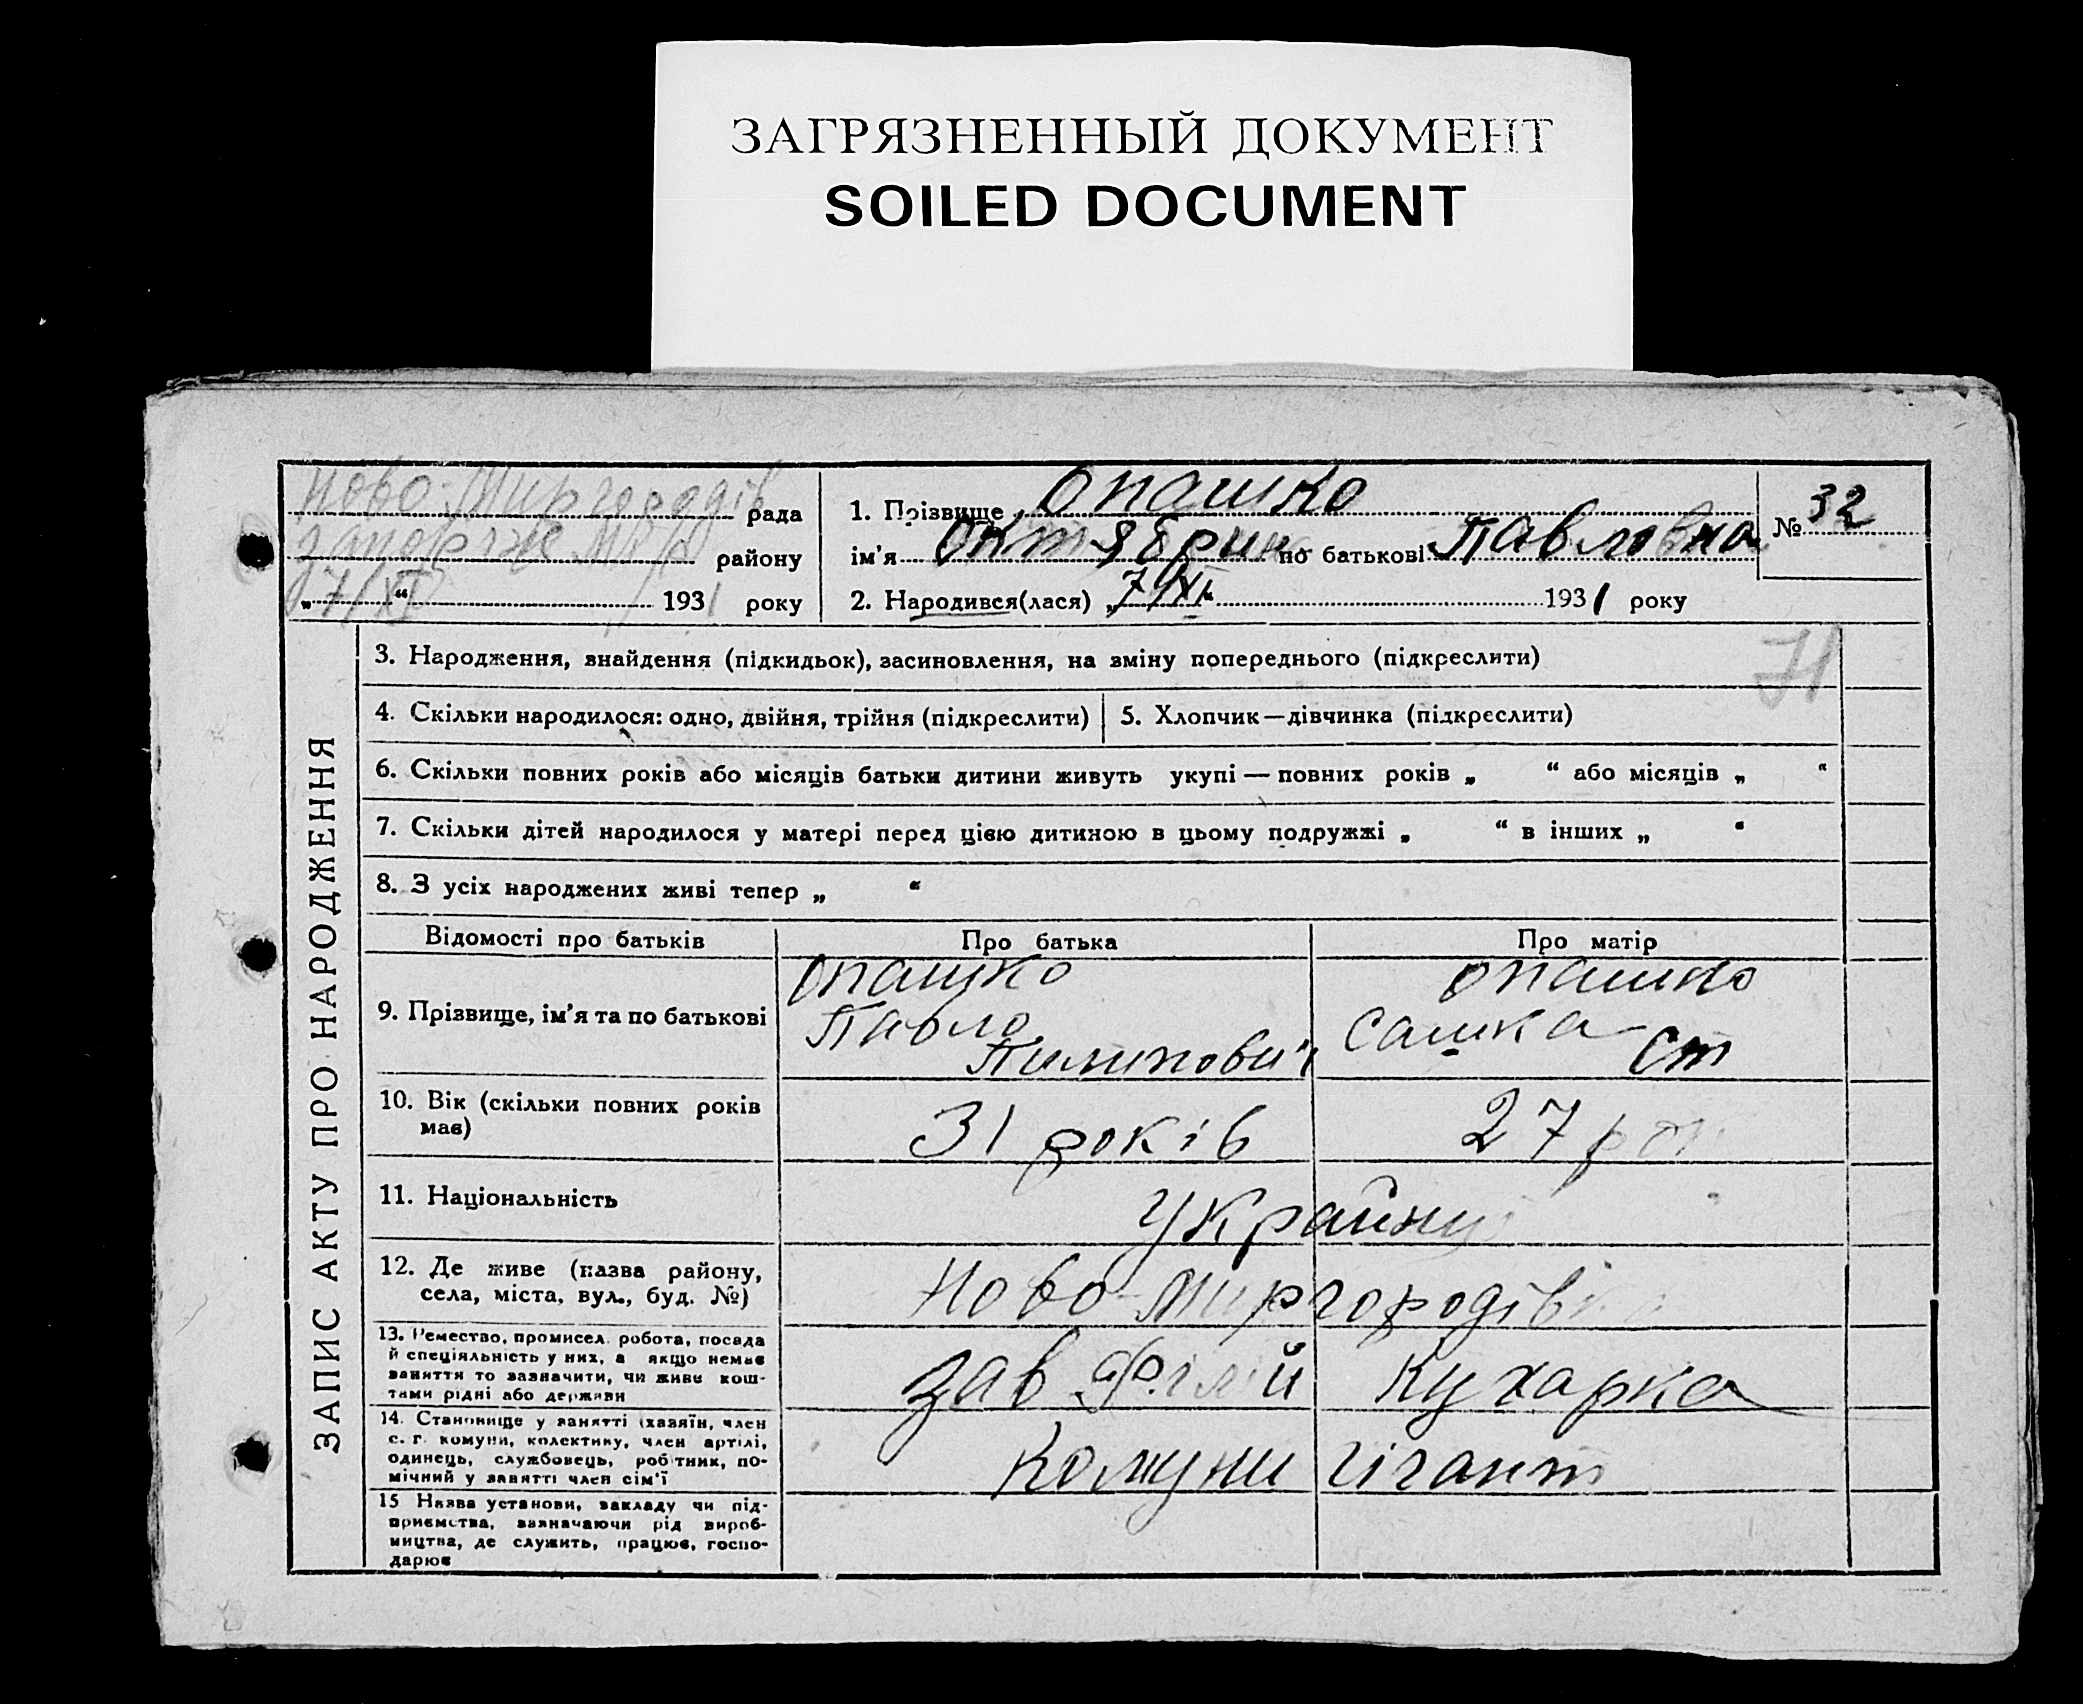 ЗАГРЯЗНЕННЫЙ ДОКУМЕНТ
SOILED DOCUMENT
Ново-Миргородів рада
району
„7/XI“ 1931 року
1. Прізвище Опашко
ім'я Октябрин по батькові Павловна
№ 32
2. Народився(лася) „7/XI“ 1931 року
ЗАПИС АКТУ ПРО НАРОДЖЕННЯ
3. Народження, знайдення (підкидьок), засиновлення, на зміну попереднього (підкреслити)
4. Скільки народилося: одно, двійня, трійня (підкреслити)
5. Хлопчик—дівчинка (підкреслити)
6. Скільки повних років або місяців батьки дитини живуть укупі — повних років „ “ або місяців „ “
7. Скільки дітей народилося у матері перед цією дитиною в цьому подружжі „ “ в інших „ “
8. З усіх народжених живі тепер „ “
Відомості про батьків
Про батька
Про матір
9. Прізвище, ім'я та по батькові
Опашко
Павло
Пилипович
Опашко
Сашка Ст
10. Вік (скільки повних років
має)
31 років
27 рок
11. Національність
Українц
12. Де живе (назва району,
села, міста, вул., буд. №)
Ново-Миргородів
13. Ремество, промисел, робота, посада
й спеціяльність у них, а якщо немає
заняття то зазначити, чи живе кош-
тами рідні або держави
зав Філій
Кухарка
14. Становище у занятті (хазяїн, член
с.-г. комуни, колективу, член артілі,
одинець, службовець, робітник, по-
мічний у занятті член сім'ї
Комуни Гігант
15 Назва установи, закладу чи під-
приємства, зазначаючи рід вироб-
ництва, де служить, працює, госпо-
дарює